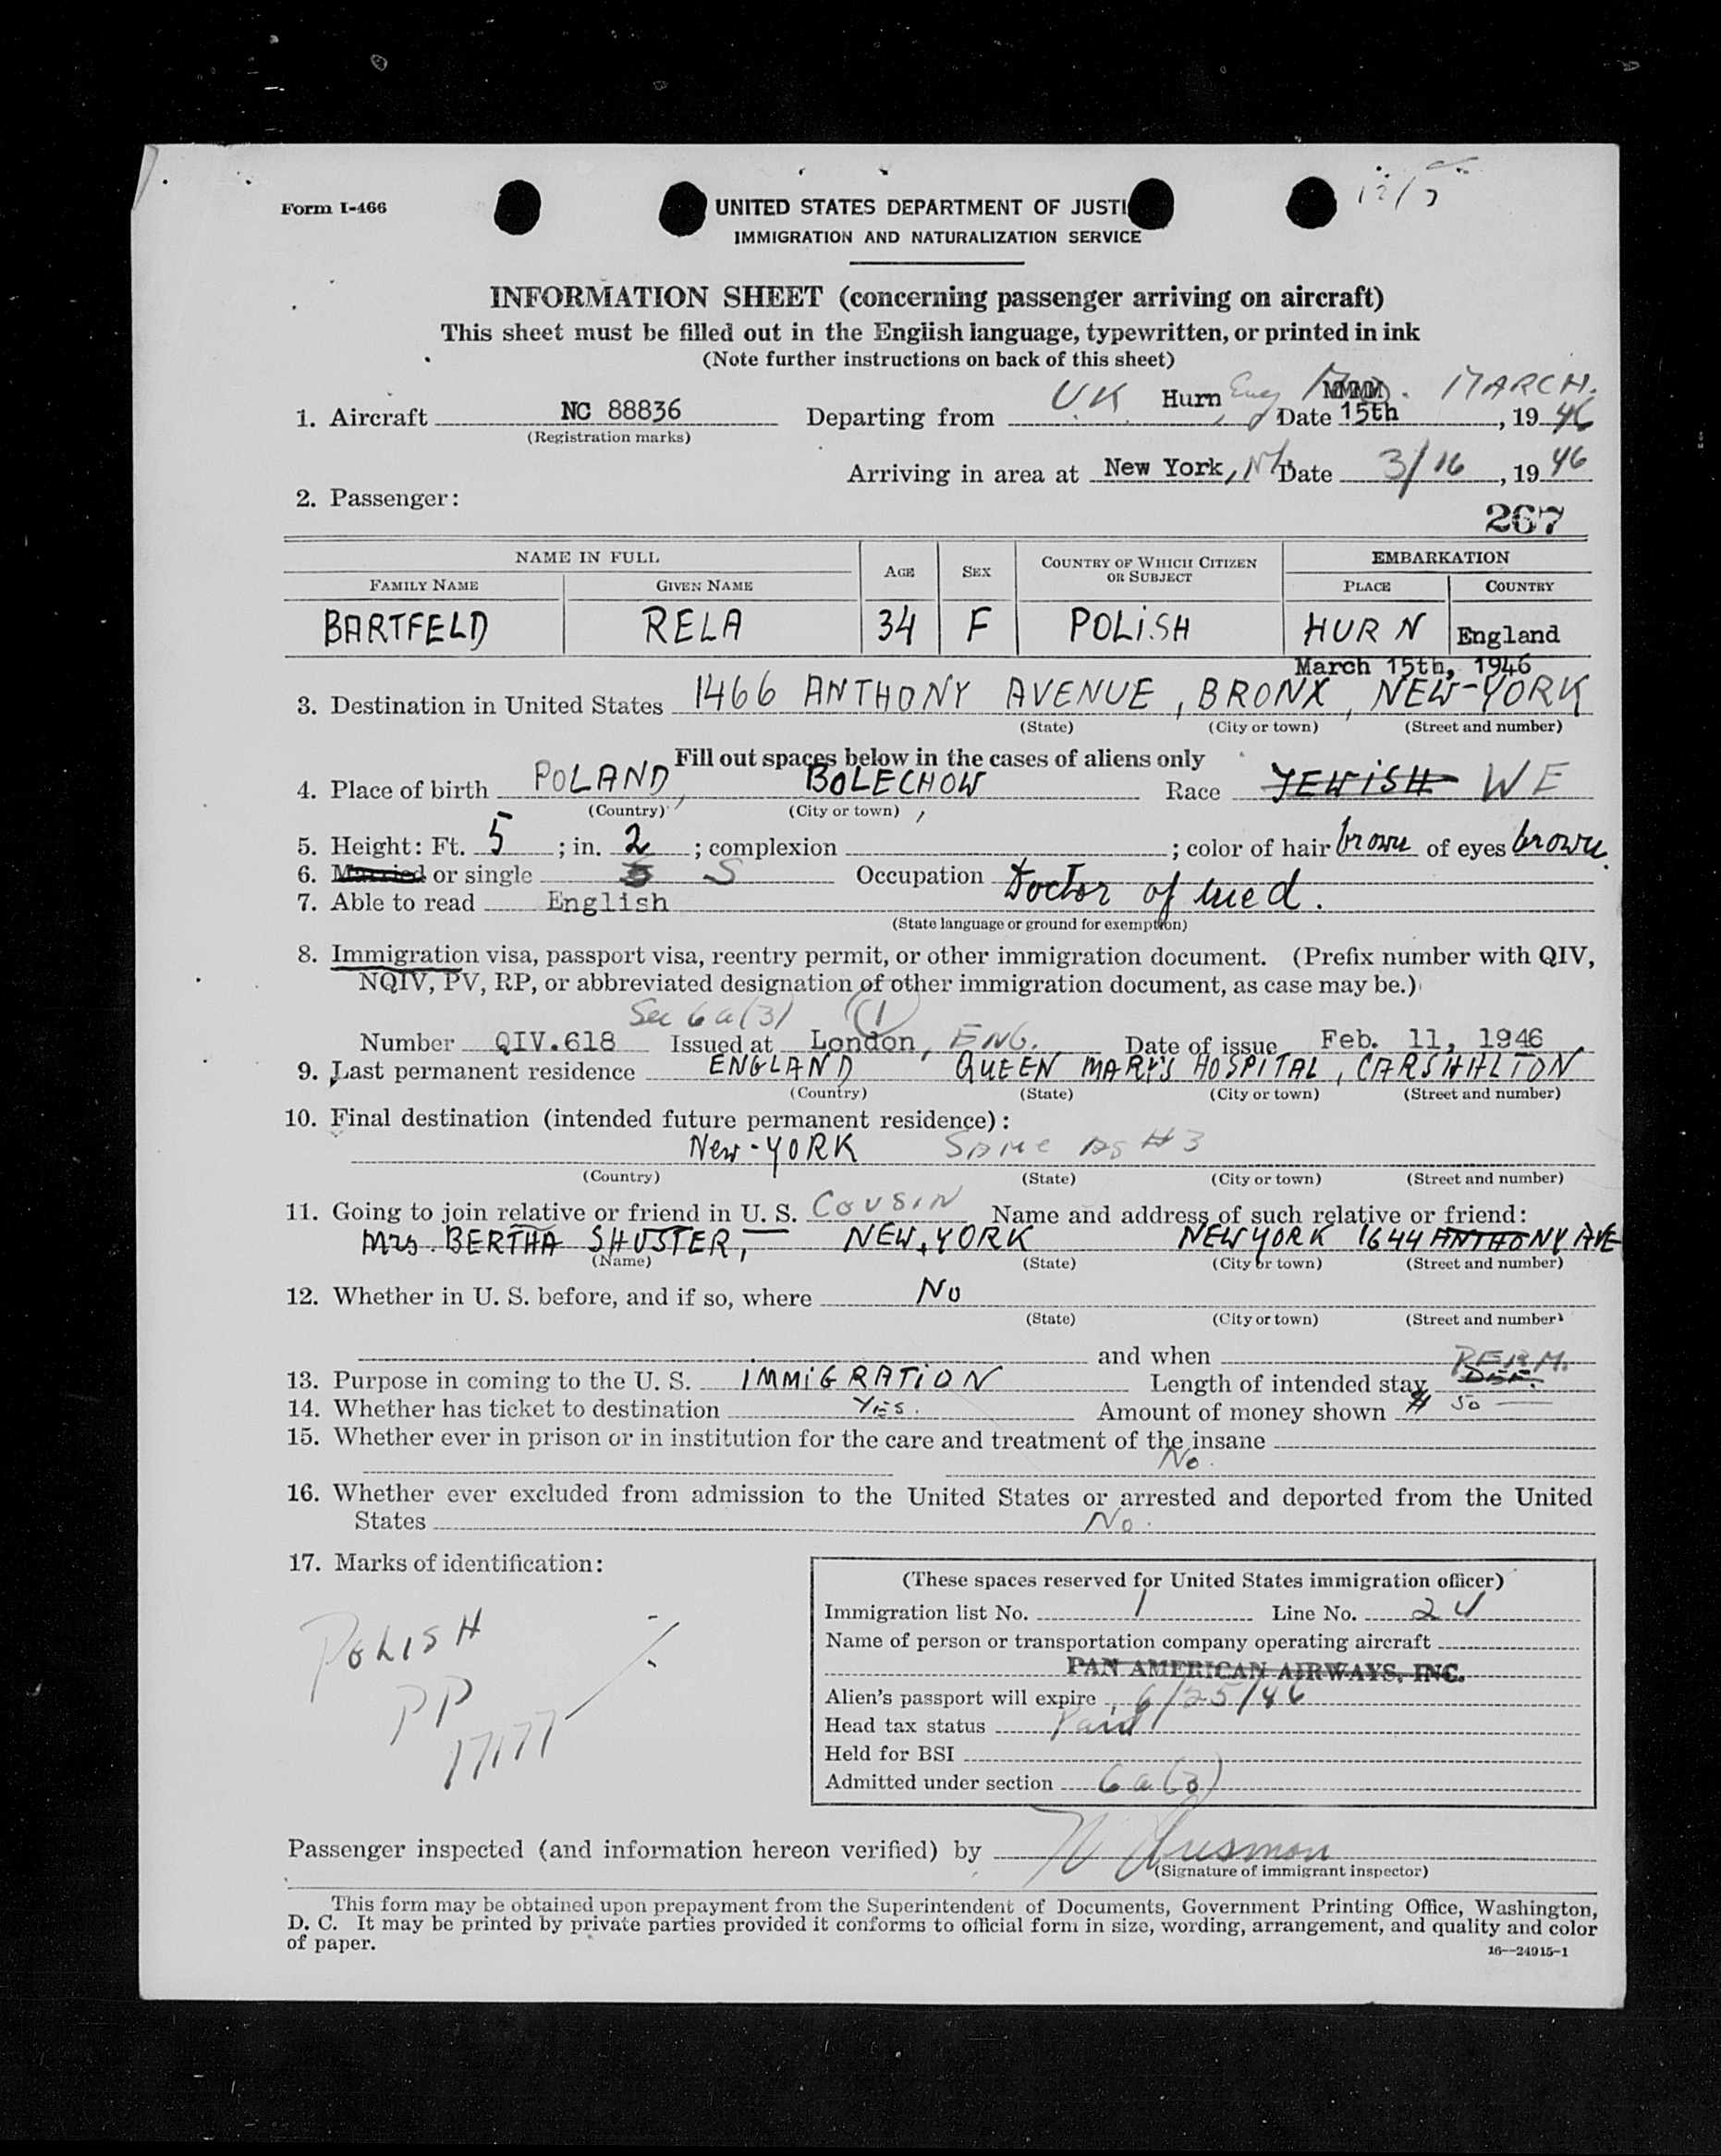 Form I-466
UNITED STATES DEPARTMENT OF JUSTI
IMMIGRATION AND NATURALIZATION SERVICE
INFORMATION SHEET (concerning passenger arriving on aircraft)
This sheet must be filled out in the English language, typewritten, or printed in ink
(Note further instructions on back of this sheet)
MARCH.
1. Aircraft NC 88836 Departing from U.K Hurn Eng Date 15th, 1946
(Registration marks)
Arriving in area at New York, Date 3/16, 1946
2. Passenger:
267
NAME IN FULL AGE SEX COUNTRY OF WHICH CITIZEN OR SUBJECT EMBARKATION
FAMILY NAME GIVEN NAME PLACE COUNTRY
BARTFELD RELA 34 F POLISH HURN England
March 15th, 1946
3. Destination in United States 1466 ANTHONY AVENUE, BRONX, NEW-YORK
(State) (City or town) (Street and number)
Fill out spaces below in the cases of aliens only
4. Place of birth POLAND, BOLECHOW Race JEWISH WE
(Country) (City or town)
5. Height: Ft. 5; in. 2; complexion ; color of hair brown of eyes brown.
6. Married or single S Occupation Doctor of med.
7. Able to read English
(State language or ground for exemption)
8. Immigration visa, passport visa, reentry permit, or other immigration document. (Prefix number with QIV,
NQIV, PV, RP, or abbreviated designation of other immigration document, as case may be.)
Sec 6a(3) (1)
Number QIV.618 Issued at London, ENG. Date of issue Feb. 11, 1946
9. Last permanent residence ENGLAND QUEEN MARY'S HOSPITAL, CARSHALTON
(Country) (State) (City or town) (Street and number)
10. Final destination (intended future permanent residence):
New-YORK SAME AS #3
(Country) (State) (City or town) (Street and number)
11. Going to join relative or friend in U. S. COUSIN Name and address of such relative or friend:
Mrs. BERTHA SHUSTER, NEW-YORK NEW YORK 1644 ANTHONY AVE
(Name) (State) (City or town) (Street and number)
12. Whether in U. S. before, and if so, where No
(State) (City or town) (Street and number)
and when
PERM.
13. Purpose in coming to the U. S. IMMIGRATION Length of intended stay
14. Whether has ticket to destination Yes. Amount of money shown $ 50
15. Whether ever in prison or in institution for the care and treatment of the insane
No.
16. Whether ever excluded from admission to the United States or arrested and deported from the United
States No.
17. Marks of identification:
POLISH
PP
17177
(These spaces reserved for United States immigration officer)
Immigration list No. 1 Line No. 24
Name of person or transportation company operating aircraft
PAN AMERICAN AIRWAYS, INC.
Alien's passport will expire 6/25/46
Head tax status Paid
Held for BSI
Admitted under section 6a(3)
Passenger inspected (and information hereon verified) by
(Signature of immigrant inspector)
This form may be obtained upon prepayment from the Superintendent of Documents, Government Printing Office, Washington,
D. C. It may be printed by private parties provided it conforms to official form in size, wording, arrangement, and quality and color
of paper.
16—24915-1